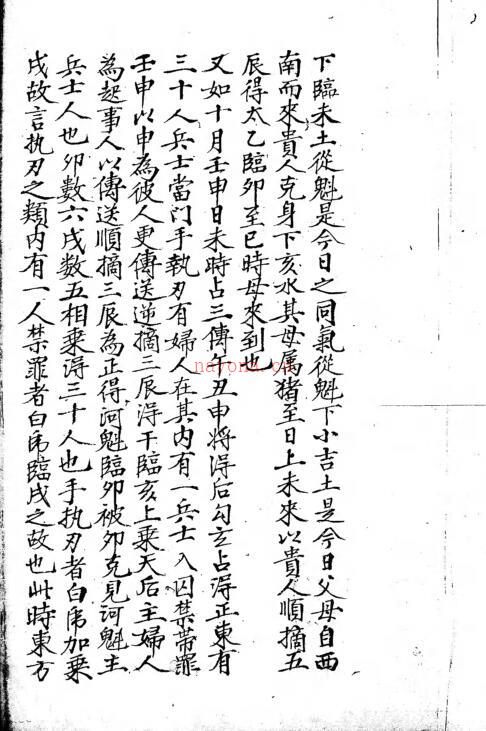 下臨未土從魁是今日之同氣從魁下小吉土是今日父母自西
南而來貴人克身下亥水其母属猪至日上未來以貴人順摘五
辰得太乙臨卯至巳時母來到也
又如十月壬申日未時占三傳午丑申将淂后勾玄占淂正東有
三十人兵士當门手執刃有婦人在其内有一兵士入囚禁帶罪
壬申以申為彼人更傳送逆摘三辰淂干臨亥上乘天后主婦人
為起事人以傳送順摘三辰為正得河魁臨卯被卯克見河魁主
兵士人也卯數六戌数五相乘淂三十人也手执刃者白虎加乘
戌故言执刃之類内有一人禁罪者白虎臨戌之故也此時東方
nayona.cn